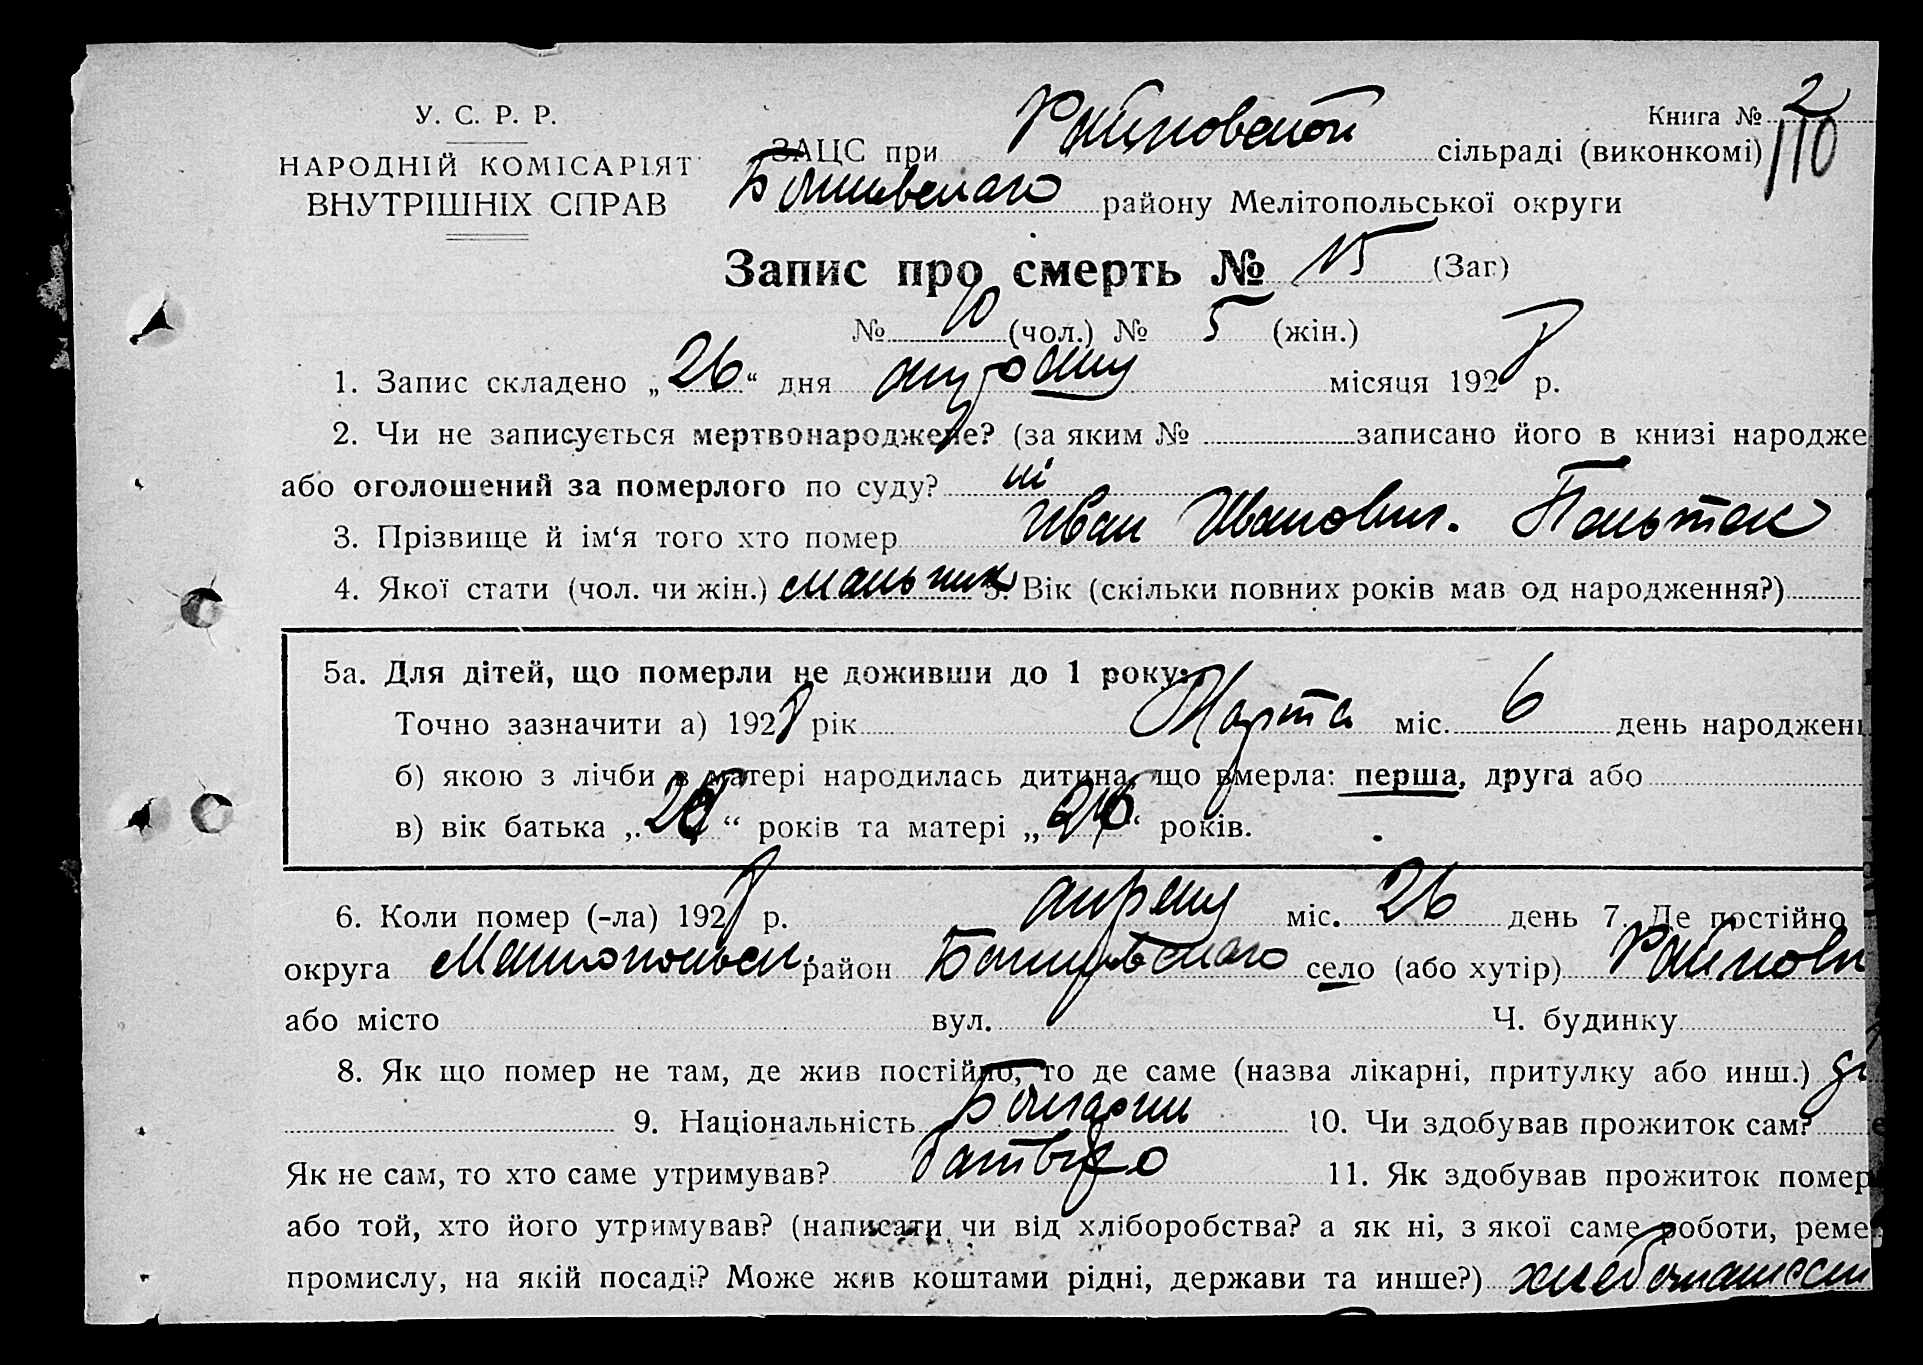 У. С. Р. Р.
НАРОДНІЙ КОМІСАРІЯТ
ВНУТРІШНІХ СПРАВ
Книга № 2
110
ЗАЦС при Райновской сільраді (виконкомі)
районy Мелітопольської округи
Запис про смерть № 15 (Заг)
№ 10 (чол.) № 5 (жін.)
1. Запис складено „ 26 “ дня місяця 1928 р.
2. Чи не записується мертвонароджене? (за яким № записано його в книзі народже
або оголошений за померлого по суду? ні
3. Прізвище й ім‘я того хто помер Иван Иванович.
4. Якої стати (чол. чи жін.) мальчик 5. Вік (скільки повних років мав од народження?)
5а. Для дітей, що померли не доживши до 1 року:
Точно зазначити а) 1928 рік Марта міс. 6 день народжен
б) якою з лічби в матері народилась дитина, що вмерла: перша, друга або
в) вік батька „ “ років та матері „ “ років.
6. Коли помер (-ла) 1928 р. апреля міс. 26 день 7. Де постійно
округа район село (або хутір) Райнов
або місто вул. Ч. будинку
8. Як що помер не там, де жив постійно, то де саме (назва лікарні, притулку або инш.)
9. Національність Болгарин 10. Чи здобував прожиток сам?
Як не сам, то хто саме утримував? 11. Як здобував прожиток помер
або той, хто його утримував? (написати чи від хліборобства? а як ні, з якої саме роботи, реме
промислу, на якій посаді? Може жив коштами рідні, держави та инше?)